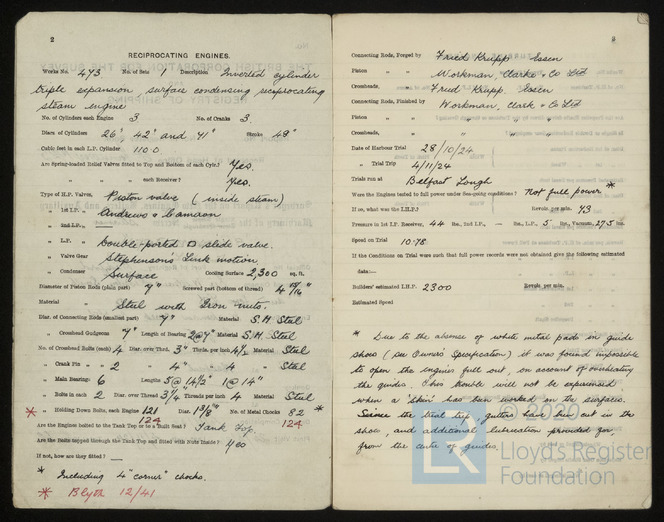 2
RECIPROCATING ENGINES.
Works No. 473 No. of Sets 1 Description Inverted cylinder
triple expansion surface condensing reciprocating
steam engine
No. of Cylinders each Engine 3 No. of Cranks 3
Diars of Cylinders 26", 42" and 71" Stroke 48"
Cubic feet in each L.P. Cylinder 110.0
Are Spring-loaded Relief Valves fitted to Top and Bottom of each Cylr.? Yes.
" " " each Receiver? Yes.
Type of H.P. Valves, Piston valve (inside steam)
" 1st I.P. " Andrews & Camaron
" 2nd I.P. " —
" L.P. " Double-ported D slide valve.
" Valve Gear Stephenson's Link motion
" Condenser Surface Cooling Surface 2,300 sq. ft.
Diameter of Piston Rods (plain part) 7" Screwed part (bottom of thread)
Material " Steel with Iron nuts.
Diar. of Connecting Rods (smallest part) 7" Material S.M. Steel
" Crosshead Gudgeons 7" Length of Bearing 2@7" Material S.M. Steel
No. of Crosshead Bolts (each) 4 Diar. over Thrd. 3" Thrds. per inch 4½ Material Steel
" Crank Pin " " 2 " 4" " 4 " Steel
" Main Bearings 6 Lengths 5@14½" 1@14"
" Bolts in each 2 Diar. over Thread 3¾" Threads per inch 4 Material Steel
* " Holding Down Bolts, each Engine 121 124 Diar. 1⅜" No. of Metal Chocks 82 * 124
Are the Engines bolted to the Tank Top or to a Built Seat? Tank Top.
Are the Bolts tapped through the Tank Top and fitted with Nuts inside? Yes
If not, how are they fitted? —
* Including 4 "corner" chocks.
* Blyth 12/41
Connecting Rods, Forged by Fried Krupp Essen
Piston " " Workman Clarke & Co Ltd
Crossheads, " " Fried Krupp. Essen
Connecting Rods, Finished by Workman, Clark & Co Ltd
Piston " " " "
Crossheads, " " " "
Date of Harbour Trial 28/10/24
" Trial Trip 4/11/24
Trials run at Belfast Lough
Were the Engines tested to full power under Sea-going conditions? Not full power *
If so, what was the I.H.P.? Revols. per min. 73
Pressure in 1st I.P. Receiver, 44 lbs., 2nd I.P., — lbs., L.P. 5 lbs., Vacuum, 27.5 ins.
Speed on Trial 10.78
If the Conditions on Trial were such that full power records were not obtained give the following estimated
data:—
Builders' estimated I.H.P. 2300 Revols. per min.
Estimated Speed
* Due to the absence of white metal pads in guide
shoes (per Owner's Specification) it was found impossible
to open the engines full out, on account of overheating
the guides. This trouble will not be experienced
when a "skin" has been worked on the surfaces.
Since the trial trip, gutters have been cut in the
shoes, and additional lubrication provided for,
from the centre of guides.
Lloyd's Register
Foundation